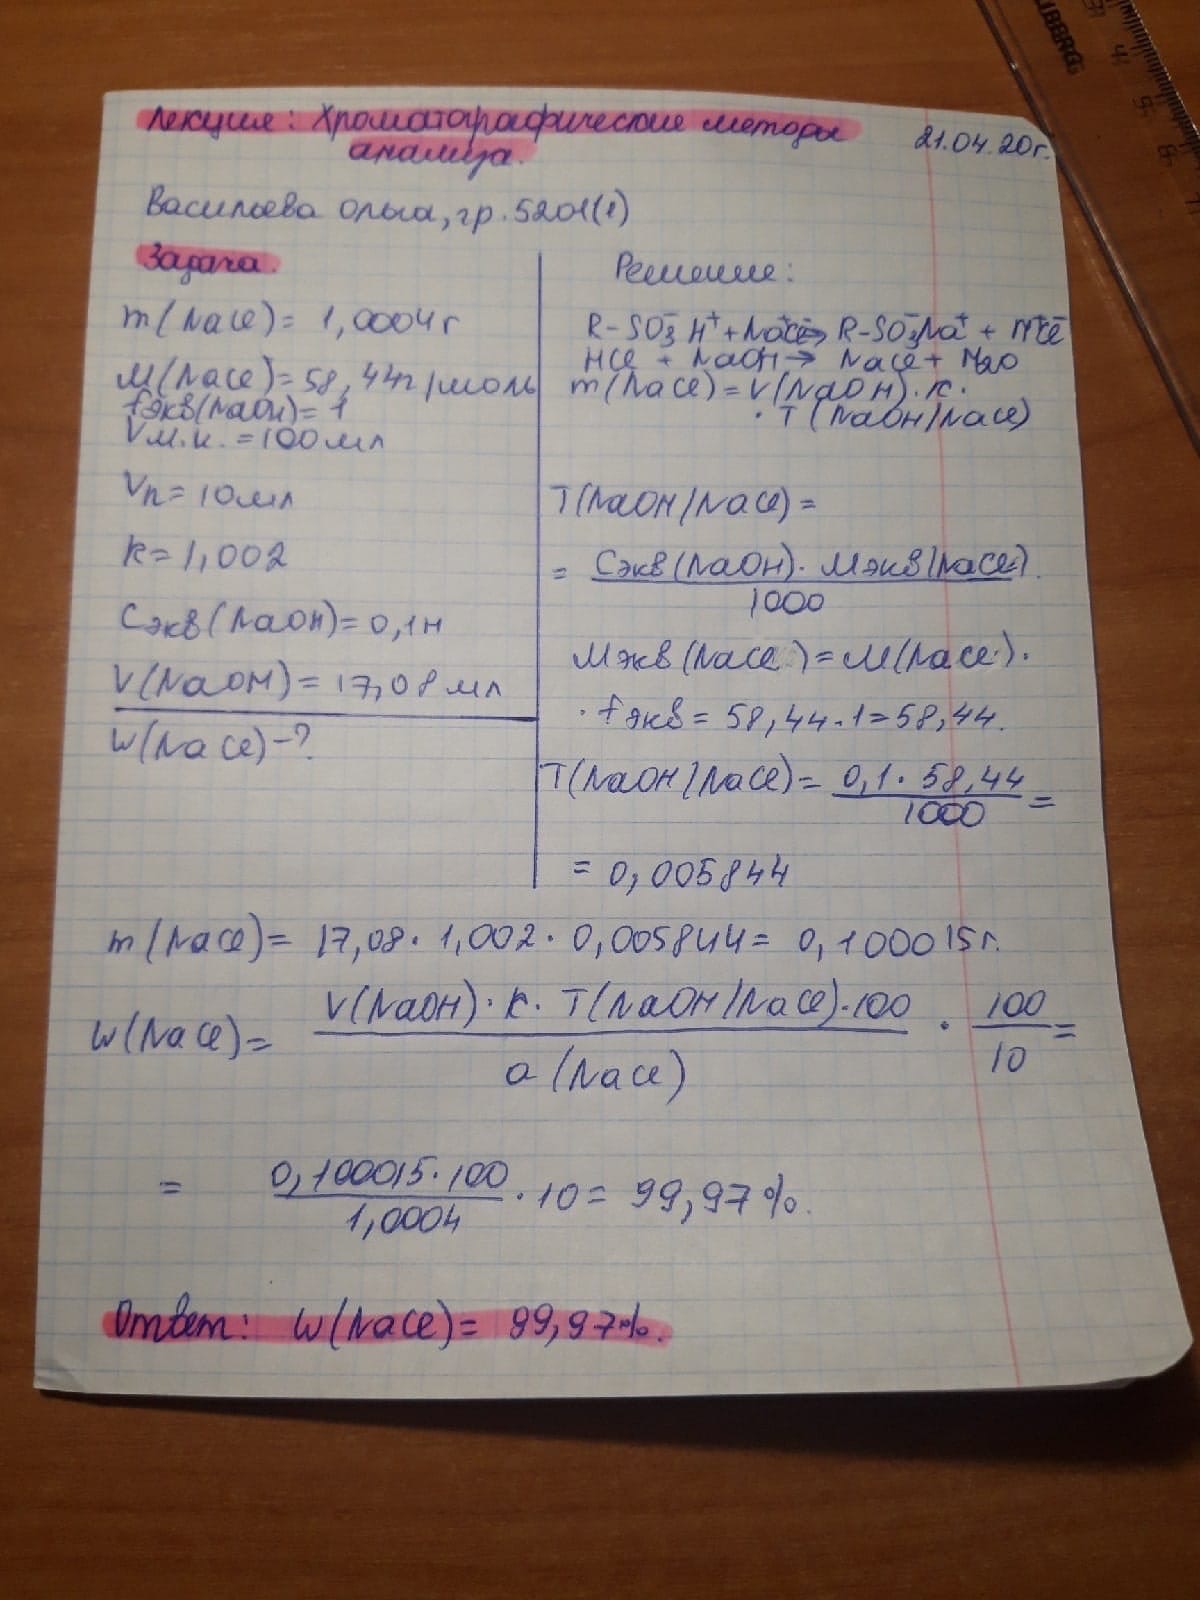 Лекция: Хроматографические методы
анализа.
21.04.20г.
Васильева Ольга, гр. 5201(1)
Задача.
m(NaCl) = 1,0004г
M(NaCl) = 58,44г/моль
fэкв(NaOH) = 1
Vм.к. = 100мл
Vп = 10мл
K = 1,002
Cэкв(NaOH) = 0,1н
V(NaOH) = 17,08мл
W(NaCl) - ?
Решение:
R-SO₃⁻H⁺ + Na⁺Cl⁻ → R-SO₃⁻Na⁺ + H⁺Cl⁻
HCl + NaOH → NaCl + H₂O
m(NaCl) = V(NaOH) · K ·
· T(NaOH/NaCl)
T(NaOH/NaCl) =
= Cэкв(NaOH) · Mэкв(NaCl)
1000
Mэкв(NaCl) = M(NaCl) ·
· fэкв = 58,44 · 1 = 58,44.
T(NaOH/NaCl) = 0,1 · 58,44 =
1000
= 0,005844
m(NaCl) = 17,08 · 1,002 · 0,005844 = 0,100015г.
W(NaCl) = V(NaOH) · K · T(NaOH/NaCl) · 100 · 100 =
a(NaCl) 10
= 0,100015 · 100 · 10 = 99,97%.
1,0004
Ответ: W(NaCl) = 99,97%.